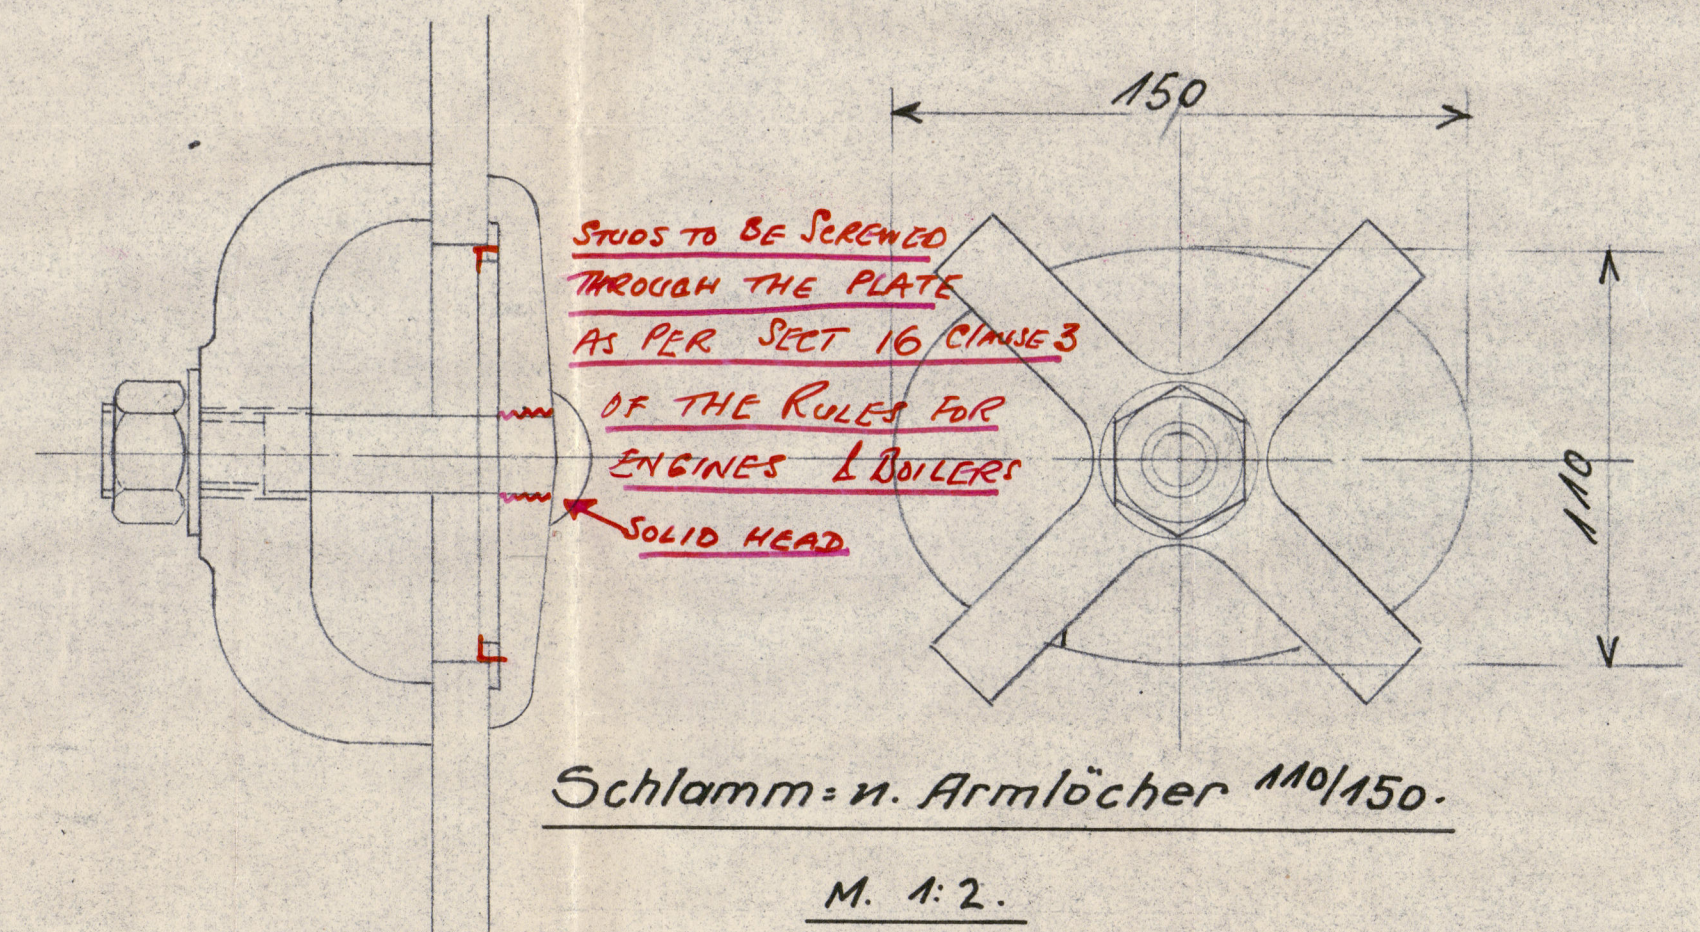 150
STUDS TO BE SCREWED
THROUGH THE PLATE
AS PER SECT 16 CLAUSE 3
OF THE RULES FOR
ENGINES & BOILERS
SOLID HEAD
110
Schlamm= u. Armlöcher 110/150.
M. 1:2.